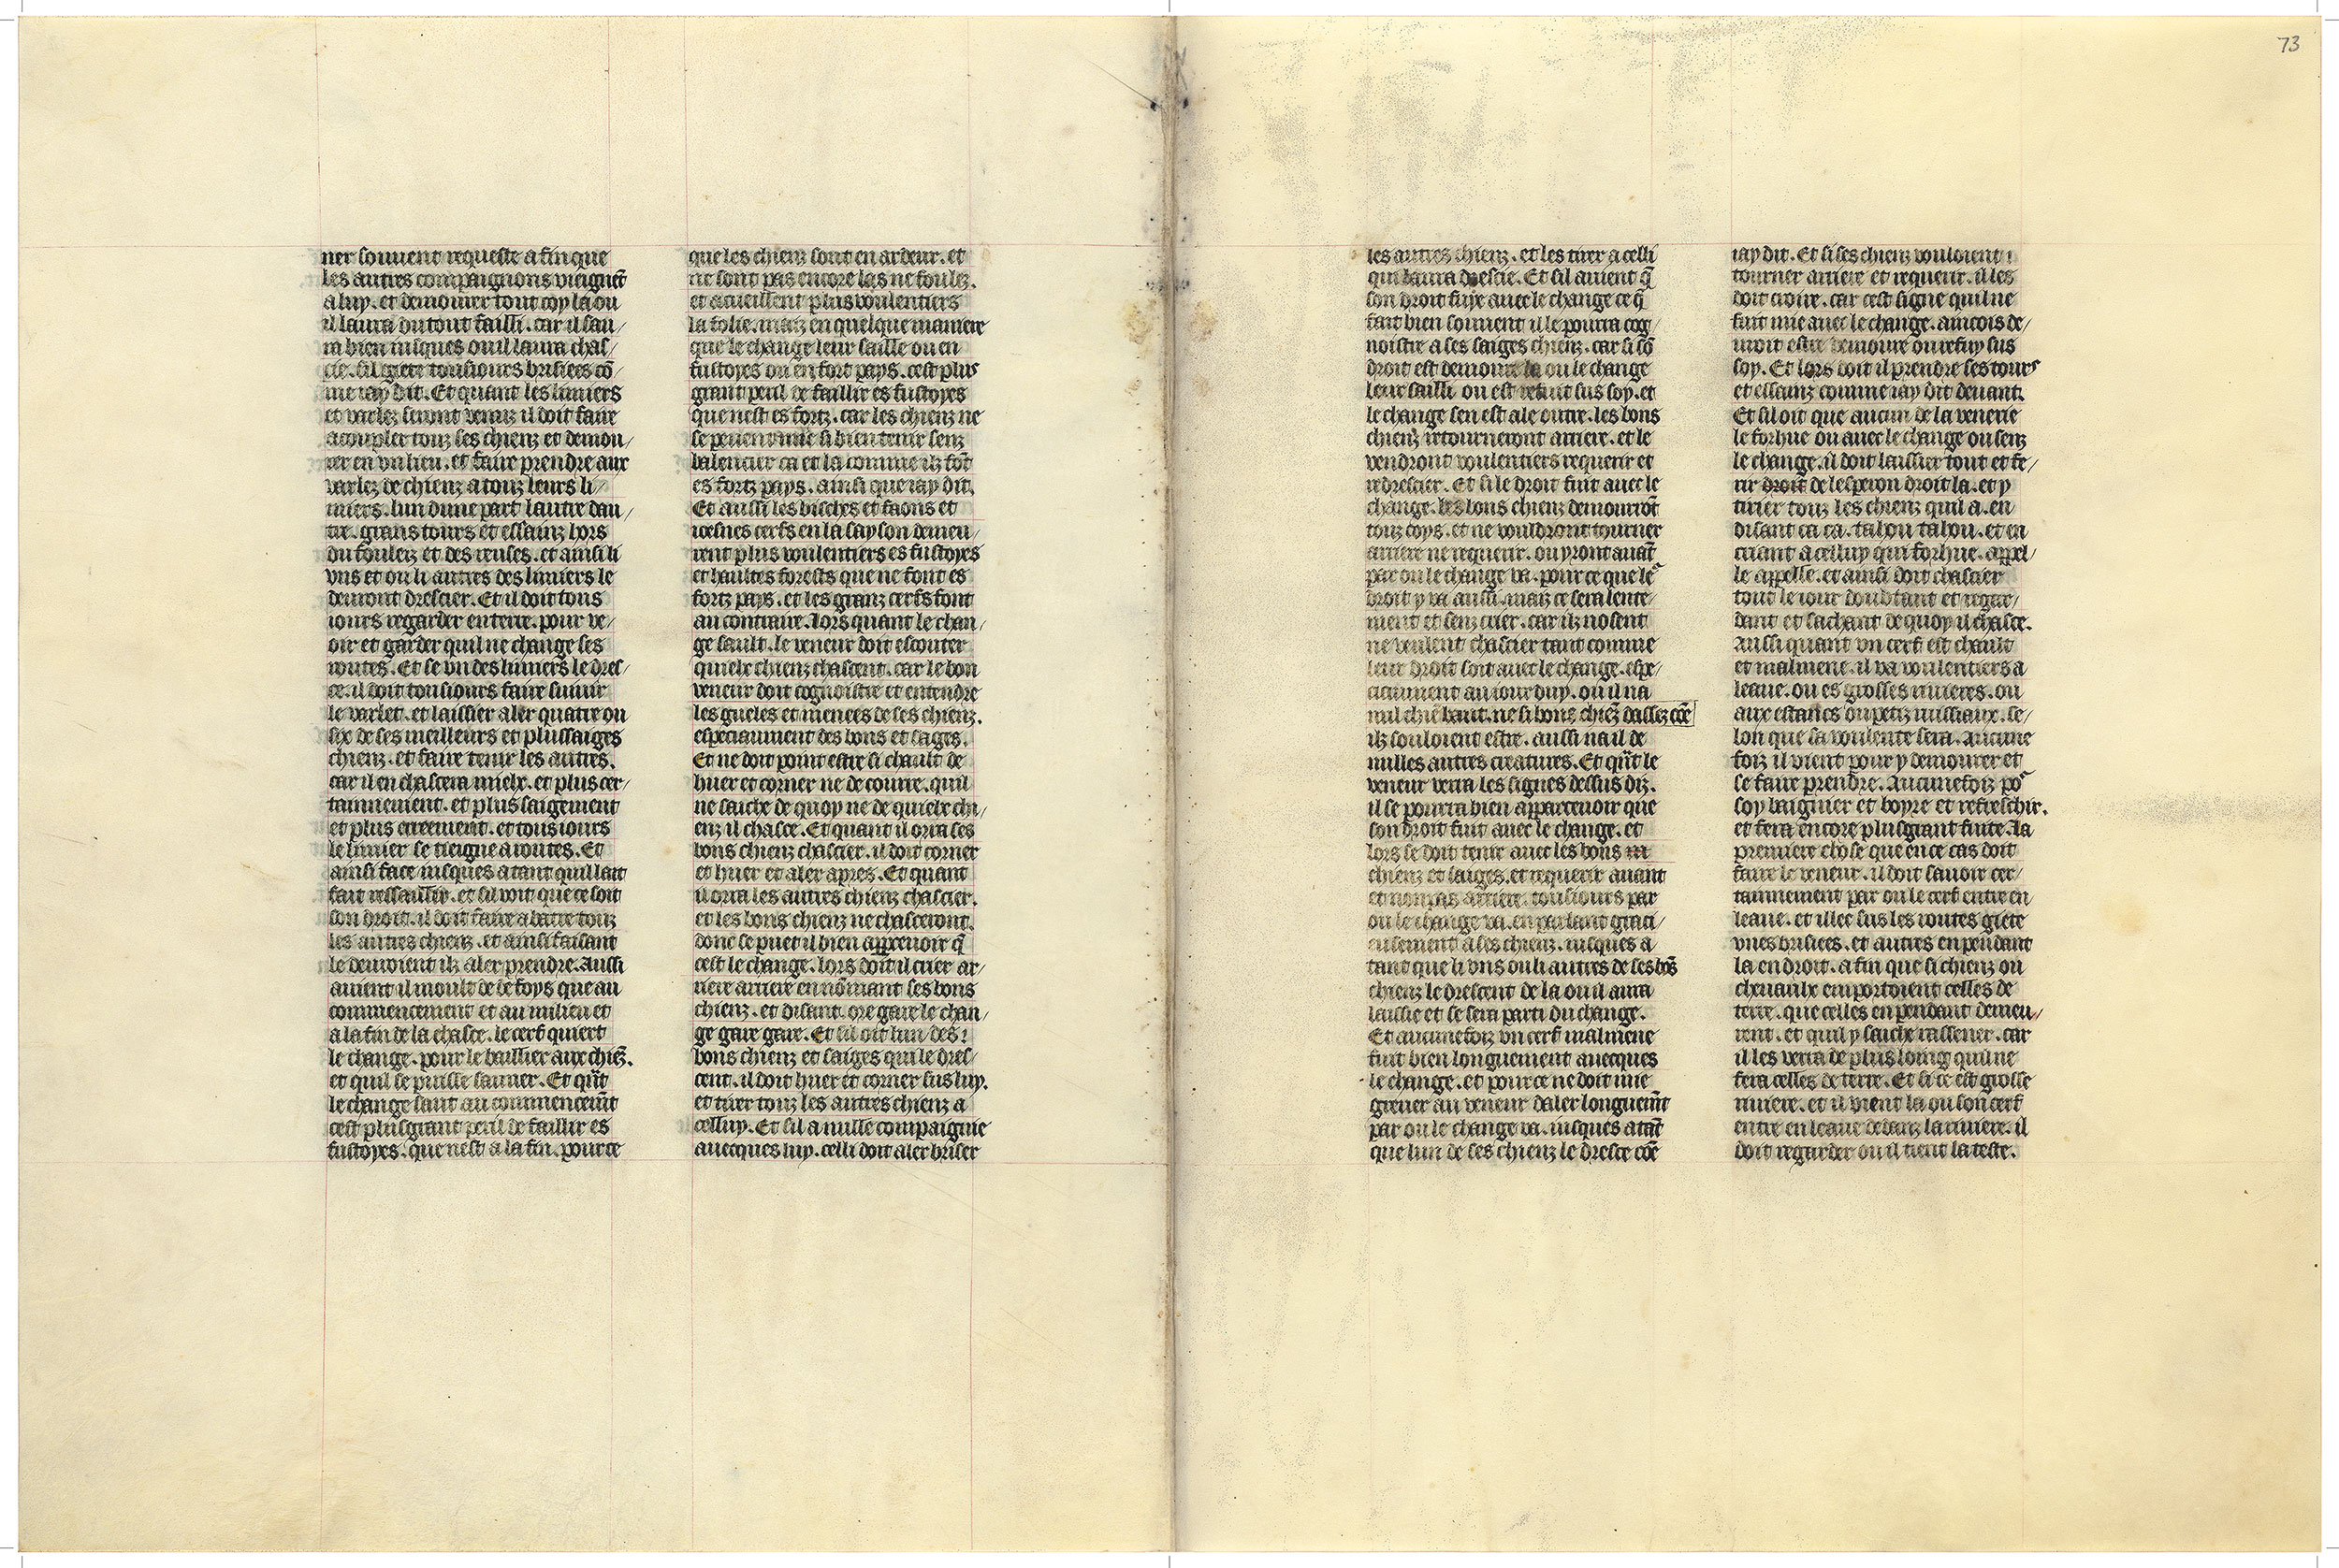 73
ner souuent requeste a fin que
les autres compaignons vieignēt
a luy. et demourer tout coy la ou
il laura du tout failli. car il sau/
ra bien iusques ou il laura chas/
cie. sil giete tousiours brisiees cō/
me iay dit. Et quant les limiers
et varlez seront venuz il doit faire
acoupler touz ses chienz et demou/
rer en vn lieu. et faire prendre aux
varlez de chienz a touz leurs li/
miers. lun dune part lautre dau/
tre. grans tours et essainz hors
du fouleiz et des reuses. et ainsi li
vns et ou li autres des limiers le
deuront drescier. Et il doit tous
iours regarder en terre. pour ve/
oir et garder quil ne change ses
routes. Et se vn des limiers le dres/
ce. il doit tousiours faire suiuir
le varlet. et laissier aler quatre ou
six de ses meilleurs et plus saiges
chienz. et faire tenir les autres.
car il en chascera mielx. et plus cer/
tainnement. et plus saigement
et plus et tous iours
le limier se tieigne a routes. Et
ainsi face iusques a tant quil lait
fait ressaillir. et sil voit que ce soit
son droit. il doit faire abatre touz
les autres chienz. et ainsi faisant
le deuroient ilz aler prendre. Aussi
auient il moult de de foys que au
commencement et au milieu et
a la fin de la chasce. le cerf quiert
le change. pour le baillier aux chiēz.
et quil se puisse sauuer. Et qūt
le change saut au commencemēt
cest plus grant peril de faillir es
fustoyes. que nest a la fin. pour ce
que les chienz sont en ardeur. et
ne sont pas encore las ne foulez.
et acueillent plus voulentiers
la folie. maiz en quelque maniere
que le change leur saille ou en
fustoyes ou en fort pays. cest plus
grant peril de faillir es fustoyes
que nest es fortz. car les chienz ne
se peuent mie si bien tenir senz
balencier ca et la comme ilz font
es fortz pays. ainsi que iay dit.
Et aussi les bisches et faons et
ioesnes cerfs en la sayson demeu/
rent plus voulentiers es fustoyes
et haultes forests que ne font es
fortz pays. et les granz cerfs font
au contraire. lors quant le chan/
ge sault. le veneur doit escouter
quielx chienz chascent. car le bon
veneur doit cognoistre et entendre
les gueles et menees de ses chienz.
especiaument des bons et sages.
Et ne doit point estre si chault de
huer et corner ne de courre. quil
ne saiche de quoy ne de quielx chi/
enz il chasce. Et quant il orra ses
bons chienz chascier. il doit corner
et huer et aler apres. Et quant
il orra les autres chienz chascier.
et les bons chienz ne chasceront.
donc se puet il bien apperceuoir q̄
cest le change. lors doit il crier ar/
riere arriere en nōmant ses bons
chienz. et disant. ore gare le chan/
ge gare gare. Et sil oit lun des
bons chienz et saiges qui le dres/
cent. il doit huer et corner sus luy.
et tirer touz les autres chienz a
celluy. Et sil a nulle compaignie
auecques luy. celli doit aler briser
les autres chienz. et les tirer a celli
qui laura drescie. Et sil auient q̄
son droit fuye auec le change ce q̄
fait bien souuent il le pourra cog/
noistre a ses saiges chienz. car si sō
droit est demoure la ou le change
leur sailli ou est refuit sus soy. et
le change sen est ale outre. les bons
chienz retourneront arriere. et le
vendront voulentiers requerir et
redrescier. Et si le droit fuit auec le
change. les bons chienz demourrōt
touz coys. et ne vouldront tourner
arriere ne requerir. ou yront auāt
par ou le change va. pour ce que leʳ
droit y va aussi. maiz ce sera lente/
ment et senz crier. car ilz nosent
ne veulent chascier tant comme
leur droit soit auec le change. espe/
ciaument au iour duy. ou il na
nul chiē baut. ne si bons chiēz dassez cōe
ilz souloient estre. aussi na il de
nulles autres creatures. Et qūt le
veneur verra les signes dessus diz.
il se pourra bien apparceuoir que
son droit fuit auec le change. et
lors se doit tenir auec les bons
chienz et saiges. et requerir auant
et non pas arriere. tousiours par
ou le change va. en parlant graci/
eusement a ses chienz. iusques a
tant que li vns ou li autres de ses bōs
chienz le drescent de la ou il aura
laissie et se sera parti du change.
Et aucunefoiz vn cerf malmene
fuit bien longuement auecques
le change. et pour ce ne doit mie
greuer au veneur daler longuemēt
par ou le change va. iusques a tāt
que lun de ses chienz le dresce cōe
iay dit. Et si ses chienz vouloient
tourner arriere et requerir. il les
doit croire. car cest signe quil ne
fuit mie auec le change. aincois de/
uroit estre demoure ou refuy sus
soy. Et lors doit il prendre ses tours
et essainz comme iay dit deuant.
Et sil oit que aucun de la venerie
le forhue ou auec le change ou senz
le change. il doit laissier tout et fe/
rir droit de lesperon droit la. et y
tirier touz les chienz quil a. en
disant ca ca. tahou tahou. et en
criant a celluy qui forhue. appel/
le appelle. et ainsi doit chascier
tout le iour doubtant et regar/
dant et sachant de quoy il chasce.
Aussi quant vn cerf est chault
et malmene. il va voulentiers a
leaue. ou es grosses riuieres. ou
aux estancs ou petiz ruissiaux. se/
lon que sa voulente sera. Aucune
foiz il vient pour y demourer et
se faire prendre. Aucunefoiz poʳ
soy baignier et boyre et refreschir.
et fera encore plus grant fuite. la
premiere chose que en ce cas doit
faire le veneur. il doit sauoir cer/
tainnement par ou le cerf entre en
leaue. et illec sus les routes giete
vnes brisiees. et autres en pendant
la endroit. a fin que si chienz ou
cheuaulx emportoient celles de
terre. que celles en pendant demeu/
rent. et quil y saiche rassener. car
il les verra de plus loing quil ne
fera celles de terre. Et si ce est grosse
riuiere. et il vient la ou son cerf
entre en leaue dedanz la riuiere. il
doit regarder ou il tient la teste.